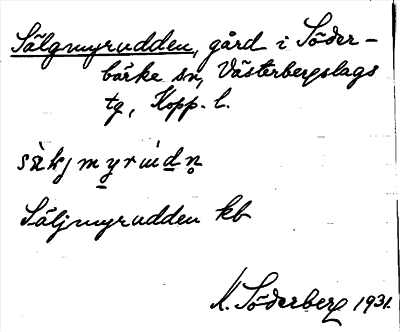 Sälgmyrudden, gård i Söder-
bärke sn, Västerbergslags
tg, Kopp. l.
Säljmyrudden kb
K. Söderberg 1931.